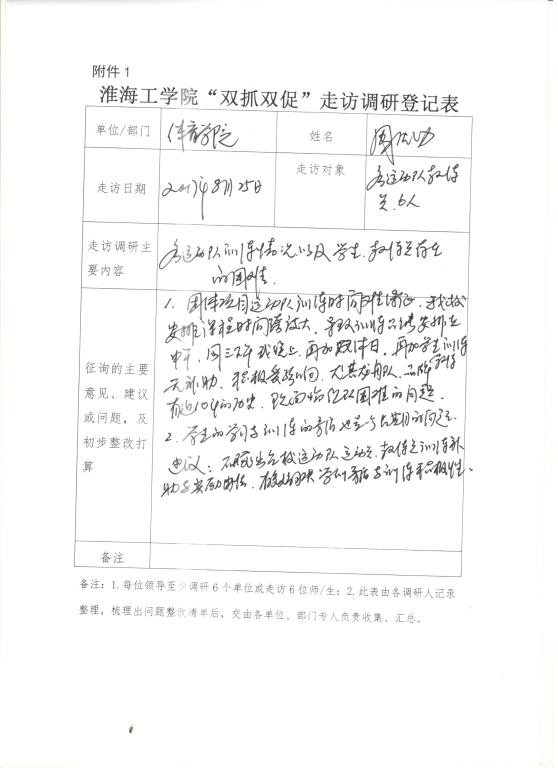 附件 1
淮海工学院“双抓双促”走访调研登记表
单位/部门 体育学院 姓名 周
走访日期 2017年8月25日 走访对象 各运动队教练员6人
走访调研主要内容 各运动队训练情况以及学生、教练员存在
的困难.
征询的主要意见、建议或问题，及初步整改打算
1. 团体项目运动队训练时间难保证，我校
安排课程时间跨该大，导致训练只能安排在
中午、周三下午或晚上，再加假日，再加学生训练
无补助，积极受影响，尤其龙舟队、
有近10年的历史，现面临队困难的问题.
2. 学生的学习与训练的矛盾也是长期的问题.
建议：出台校运动队运动员、教练员训练补
助与奖励办法，学训矛盾与训练积极性.
备注
备注：1.每位领导至少调研 6 个单位或走访 6 位师/生；2.此表由各调研人记录
整理，梳理出问题整改清单后，交由各单位、部门专人负责收集、汇总。